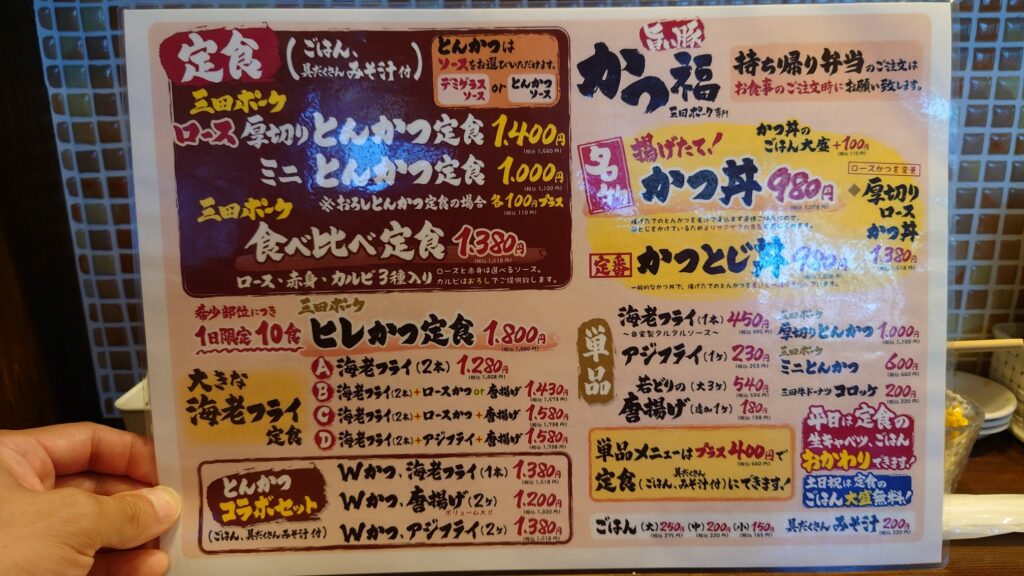 定食
(ごはん、
具だくさんみそ汁付)
とんかつは
ソースをお選びいただけます。
デミグラス
ソース
or
とんかつ
ソース
三田ポーク
ロース 厚切りとんかつ定食 1,400円
(税込 1,540円)
ミニ とんかつ定食 1,000円
(税込 1,100円)
三田ポーク ※おろしとんかつ定食の場合 各100円プラス
(税込 110円)
食べ比べ定食 1,380円
(税込 1,518円)
ロース・赤身・カルビ 3種入り
ロースと赤身は選べるソース。
カルビはおろしでご提供致します。
希少部位につき
1日限定10食
三田ポーク
ヒレかつ定食 1,800円
(税込 1,980円)
大きな
海老フライ
定食
A 海老フライ(2本) 1,280円
(税込 1,408円)
B 海老フライ(2本)+ロースかつ or 唐揚げ 1,430円
(税込 1,573円)
C 海老フライ(2本)+ロースかつ+唐揚げ 1,580円
(税込 1,738円)
D 海老フライ(2本)+アジフライ+唐揚げ 1,580円
(税込 1,738円)
とんかつ
コラボセット
(ごはん、具だくさんみそ汁付)
Wかつ、海老フライ(1本) 1,380円
(税込 1,518円)
Wかつ、唐揚げ(2ヶ) 1,200円
ボリューム大!! (税込 1,320円)
Wかつ、アジフライ(2ヶ) 1,380円
(税込 1,518円)
旨い豚
かつ福
三田ポーク専門
持ち帰り弁当のご注文は
お食事のご注文時にお願い致します。
名物
揚げたて、!
かつ丼 980円
(税込 1,078円)
かつ丼の
ごはん大盛 +100円
(税込 110円)
ロースかつを変更
◆厚切り
ロース
かつ丼
1,380円
(税込 1,518円)
定番 かつとじ丼 980円
単品
海老フライ(1本) 450円
(税込 495円)
〜自家製タルタルソース〜
アジフライ(1ヶ) 230円
(税込 253円)
若どりの(大3ヶ) 540円
唐揚げ(追加1ヶ) 180円
(税込 198円)
三田ポーク
厚切りとんかつ 1,000円
(税込 1,100円)
三田ポーク
ミニとんかつ 600円
(税込 660円)
三田牛ドーナツ コロッケ 200円
(税込 220円)
単品メニューはプラス400円で
(税込 440円)
定食(ごはん、具だくさんみそ汁付)にできます!
平日は定食の
生キャベツ、ごはん
おかわりできます!
土日祝は定食の
ごはん大盛無料!
ごはん(大)250円(中)200円(小)150円 具だくさんみそ汁 200円
(税込 275円) (税込 220円) (税込 165円) (税込 220円)